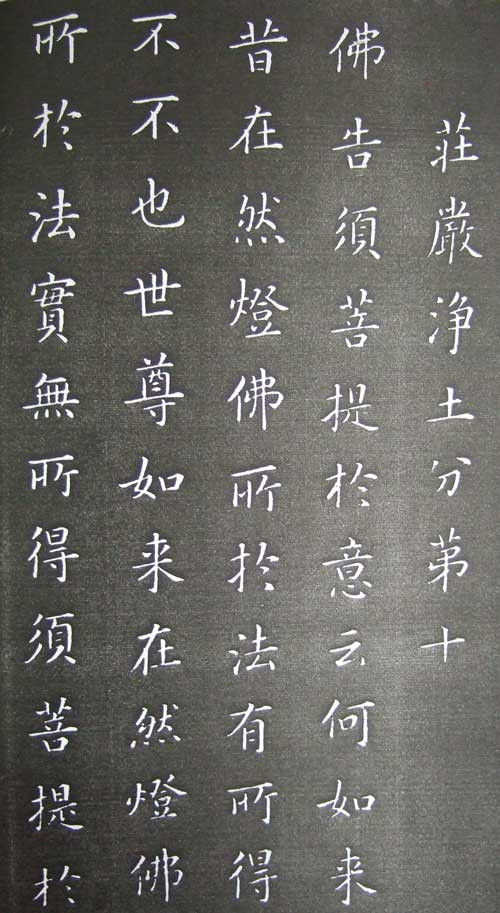 莊嚴浄土分苐十
佛告須菩提於意云何如来
昔在然燈佛所於法有所得
不不也世尊如来在然燈佛
所於法實無所得須菩提於